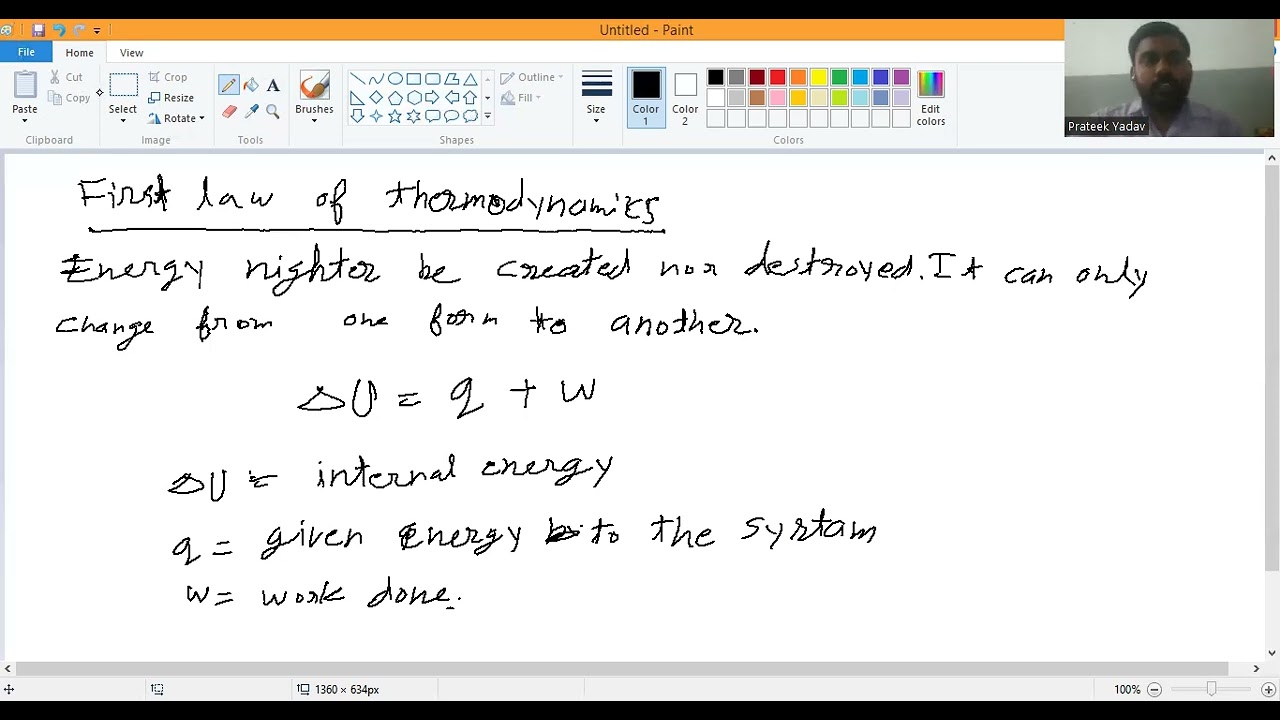 Untitled - Paint
File Home View
Paste Cut Copy Select Crop Resize Rotate Brushes Outline Fill Size Color 1 Color 2 Edit colors
Clipboard Image Tools Shapes Colors
Prateek Yadav
First law of thermodynamics
Energy nighter be created nor destroyed. It can only
change from one form to another.
ΔU = q + w
ΔU = internal energy
q = given energy to the systam
w = work done.
1360 × 634px 100%